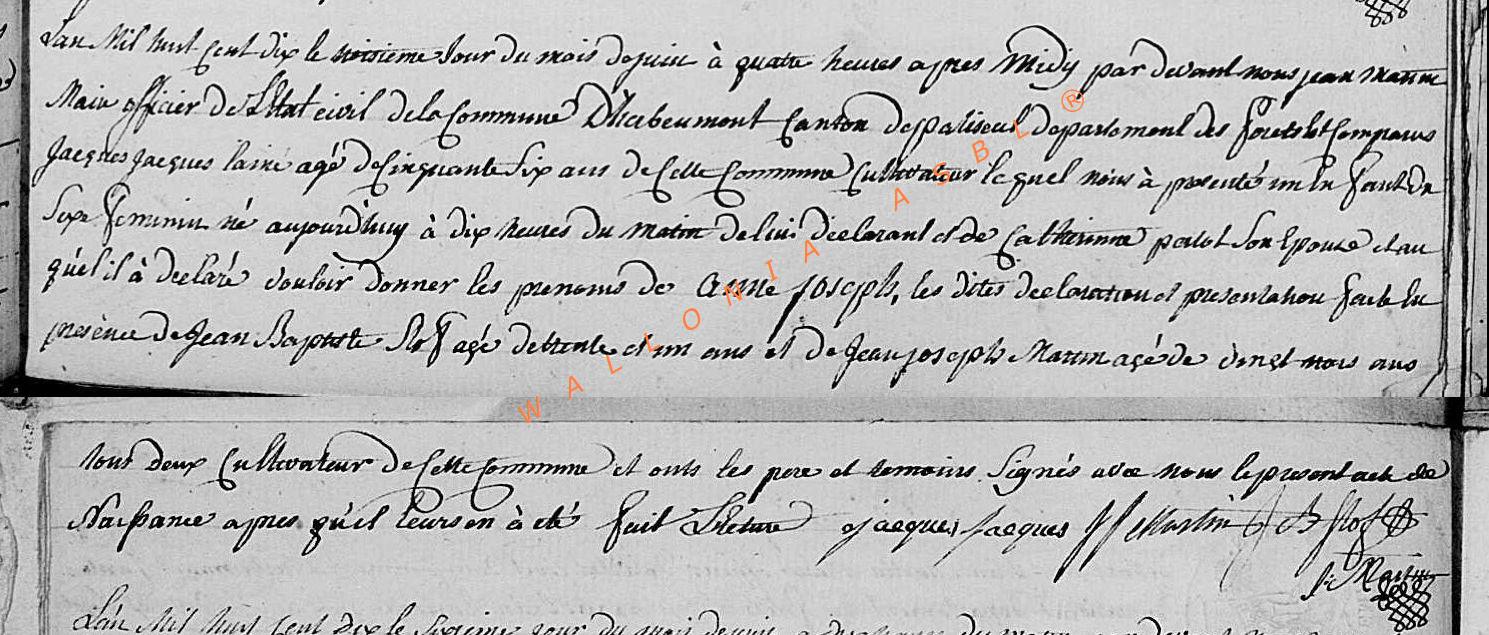 L'an Mil huit Cent dix le troisieme Jour du mois de juin à quatre heures apres Midy par devant nous jean martin
Maire officier de L'Etat civil de la Commune D'herbeumont Canton de paliseul departement des forets Est Comparus
Jacques jacques laine agé de Cinquante Six ans de Cette Commune Cultivateur lequel nous à presenté un En fant Du
Sexe feminin né aujourd'huy à dix heures du matin de lui declarant et de Catherinne Son Epouse et au
quel il à declaré vouloir donner les prenoms de Anne joseph, les dites declaration et presentation faite En
presence de Jean Baptiste Slof agé de trente et un ans et de Jean joseph Martin agé de vingt trois ans
WALLONIA ASBL ®
tous deux Cultivateur de Cette Commune et onts les pere et temoins Signés avec nous le present acte de
Naissance apres qu'il leurs en à eté fait Lecture jacques jacques JJ Martin JB Slof
J: Martin
L'an Mil huit Cent Dix le Sixieme jour du mois de juin